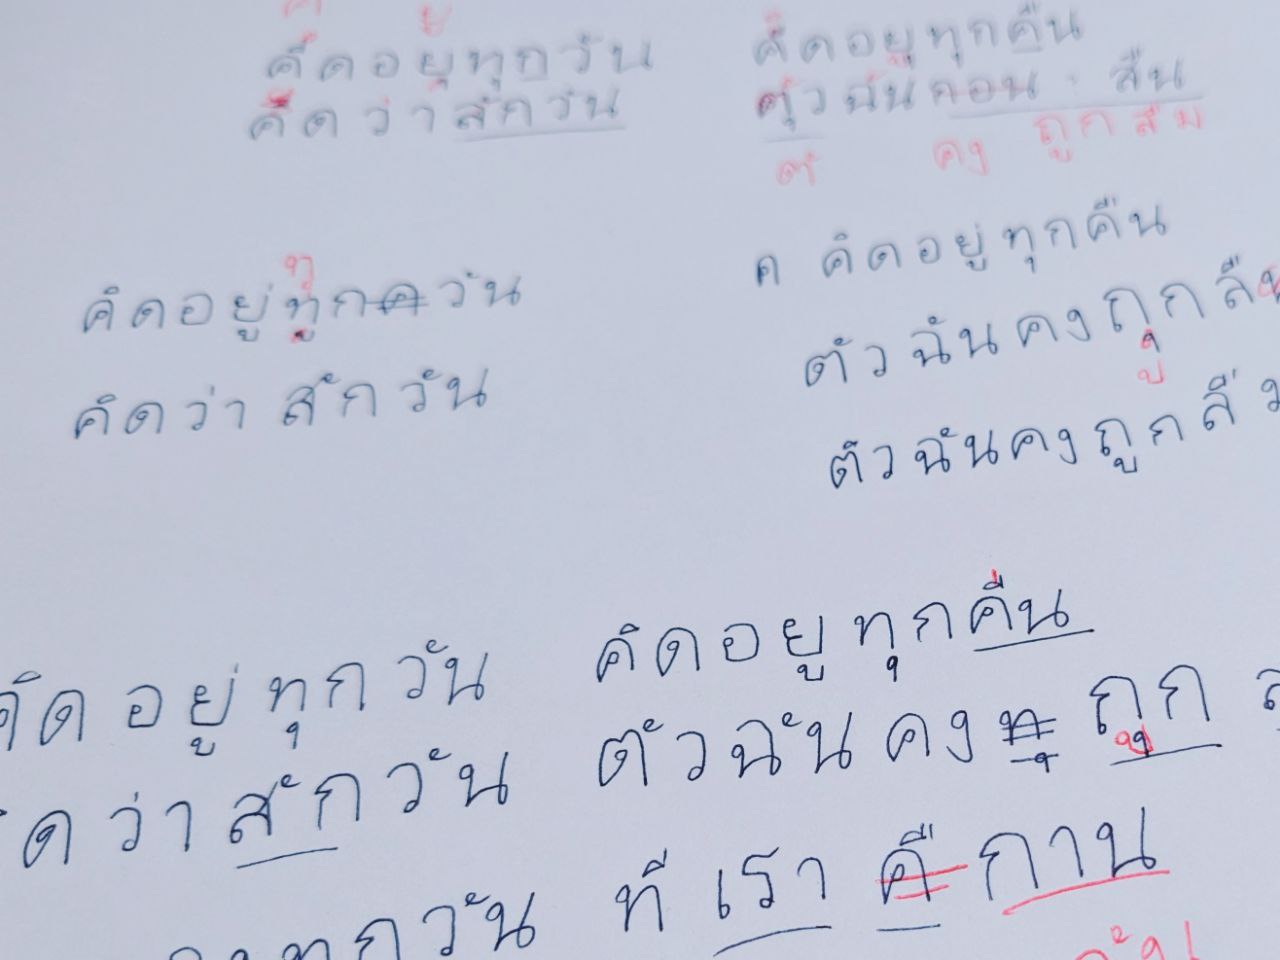 คิดอยู่ทุกวัน
คิดว่าสักวัน
คิดอยู่ทุกคืน
ตัวฉันกอน สืน
ต คง ถูกลืม
คิดอยู่ทูกควัน
ทุ
คิดว่า สักวัน
ค คิดอยู่ทุกคืน
ตัวฉันคงถุก
ตัวฉันคงถูกลื
คิดอยู่ทุกวัน
ดว่า สักวัน
คิดอยูทุกคืน
ตัวฉันคง ถูก
ทุกวัน
ที เรา คื กาน